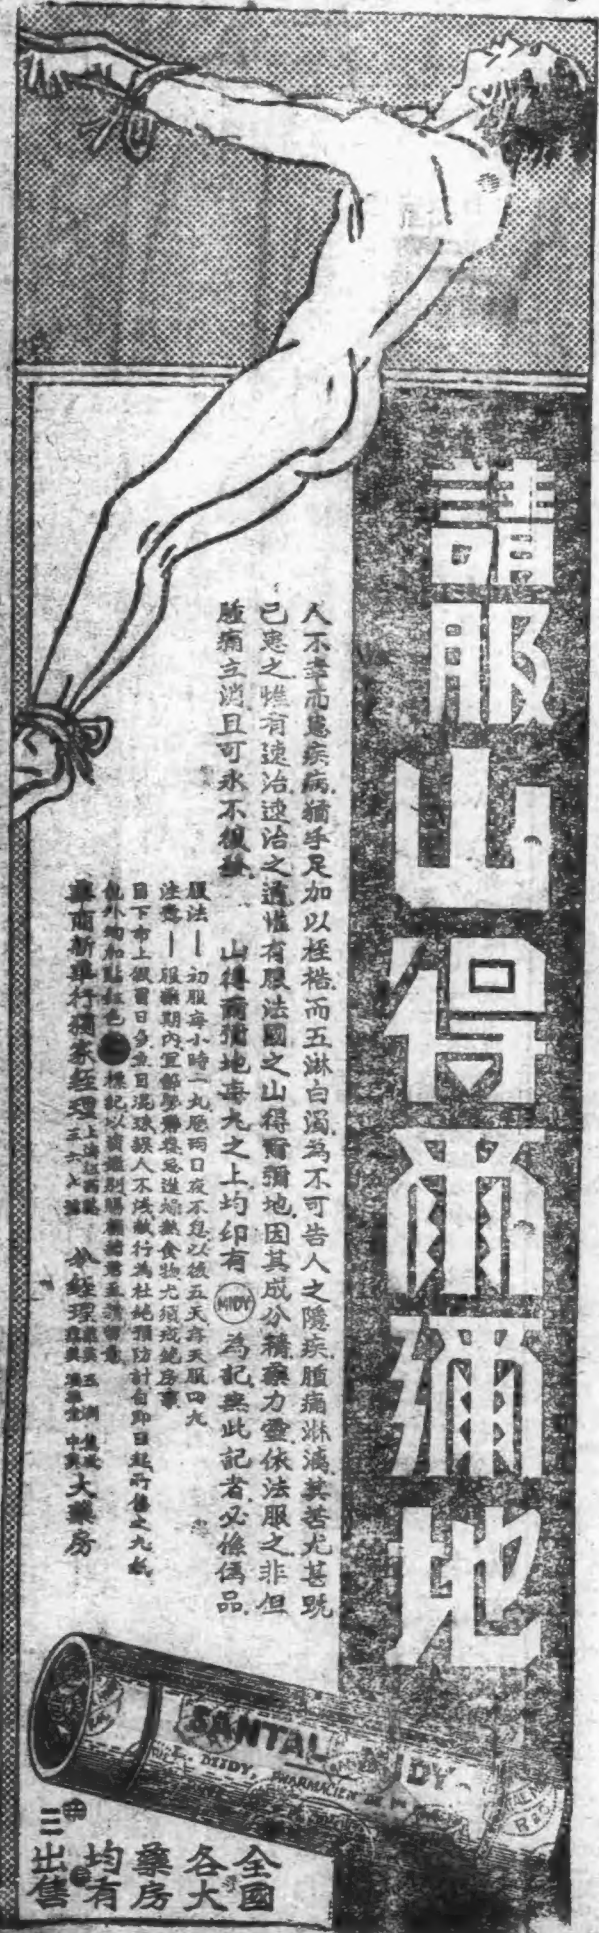 請服山得爾彌地
人不幸而患疾病猶乎足加以桎梏而五淋白濁為不可告人之隱疾腫痛淋漓其苦尤甚既
已患之惟有速治速治之道惟有服法國之山得爾彌地因其成分積藥力靈依法服之非但
腫痛立消且可永不復發 山得爾彌地每丸之上均印有 MIDY 為記無此記者必係偽品
服法 — 初服每小時一丸歷兩日夜不息以後五天每天服四丸
注意 — 服藥期內宜節學忌進食物尤須戒絕房事
目下市上假冒日多魚目混珠誤人不淺敝行為杜絕預防計自即日起所售之丸
色外均加貼紅色 標記以資鑑別購藥諸君至請留意
華商新華行獨家經理 上海江西路三六七號 分經理 大藥房
SANTAL MIDY
MIDY, PHARMACIEN
全國
各大
藥房
均有
出售